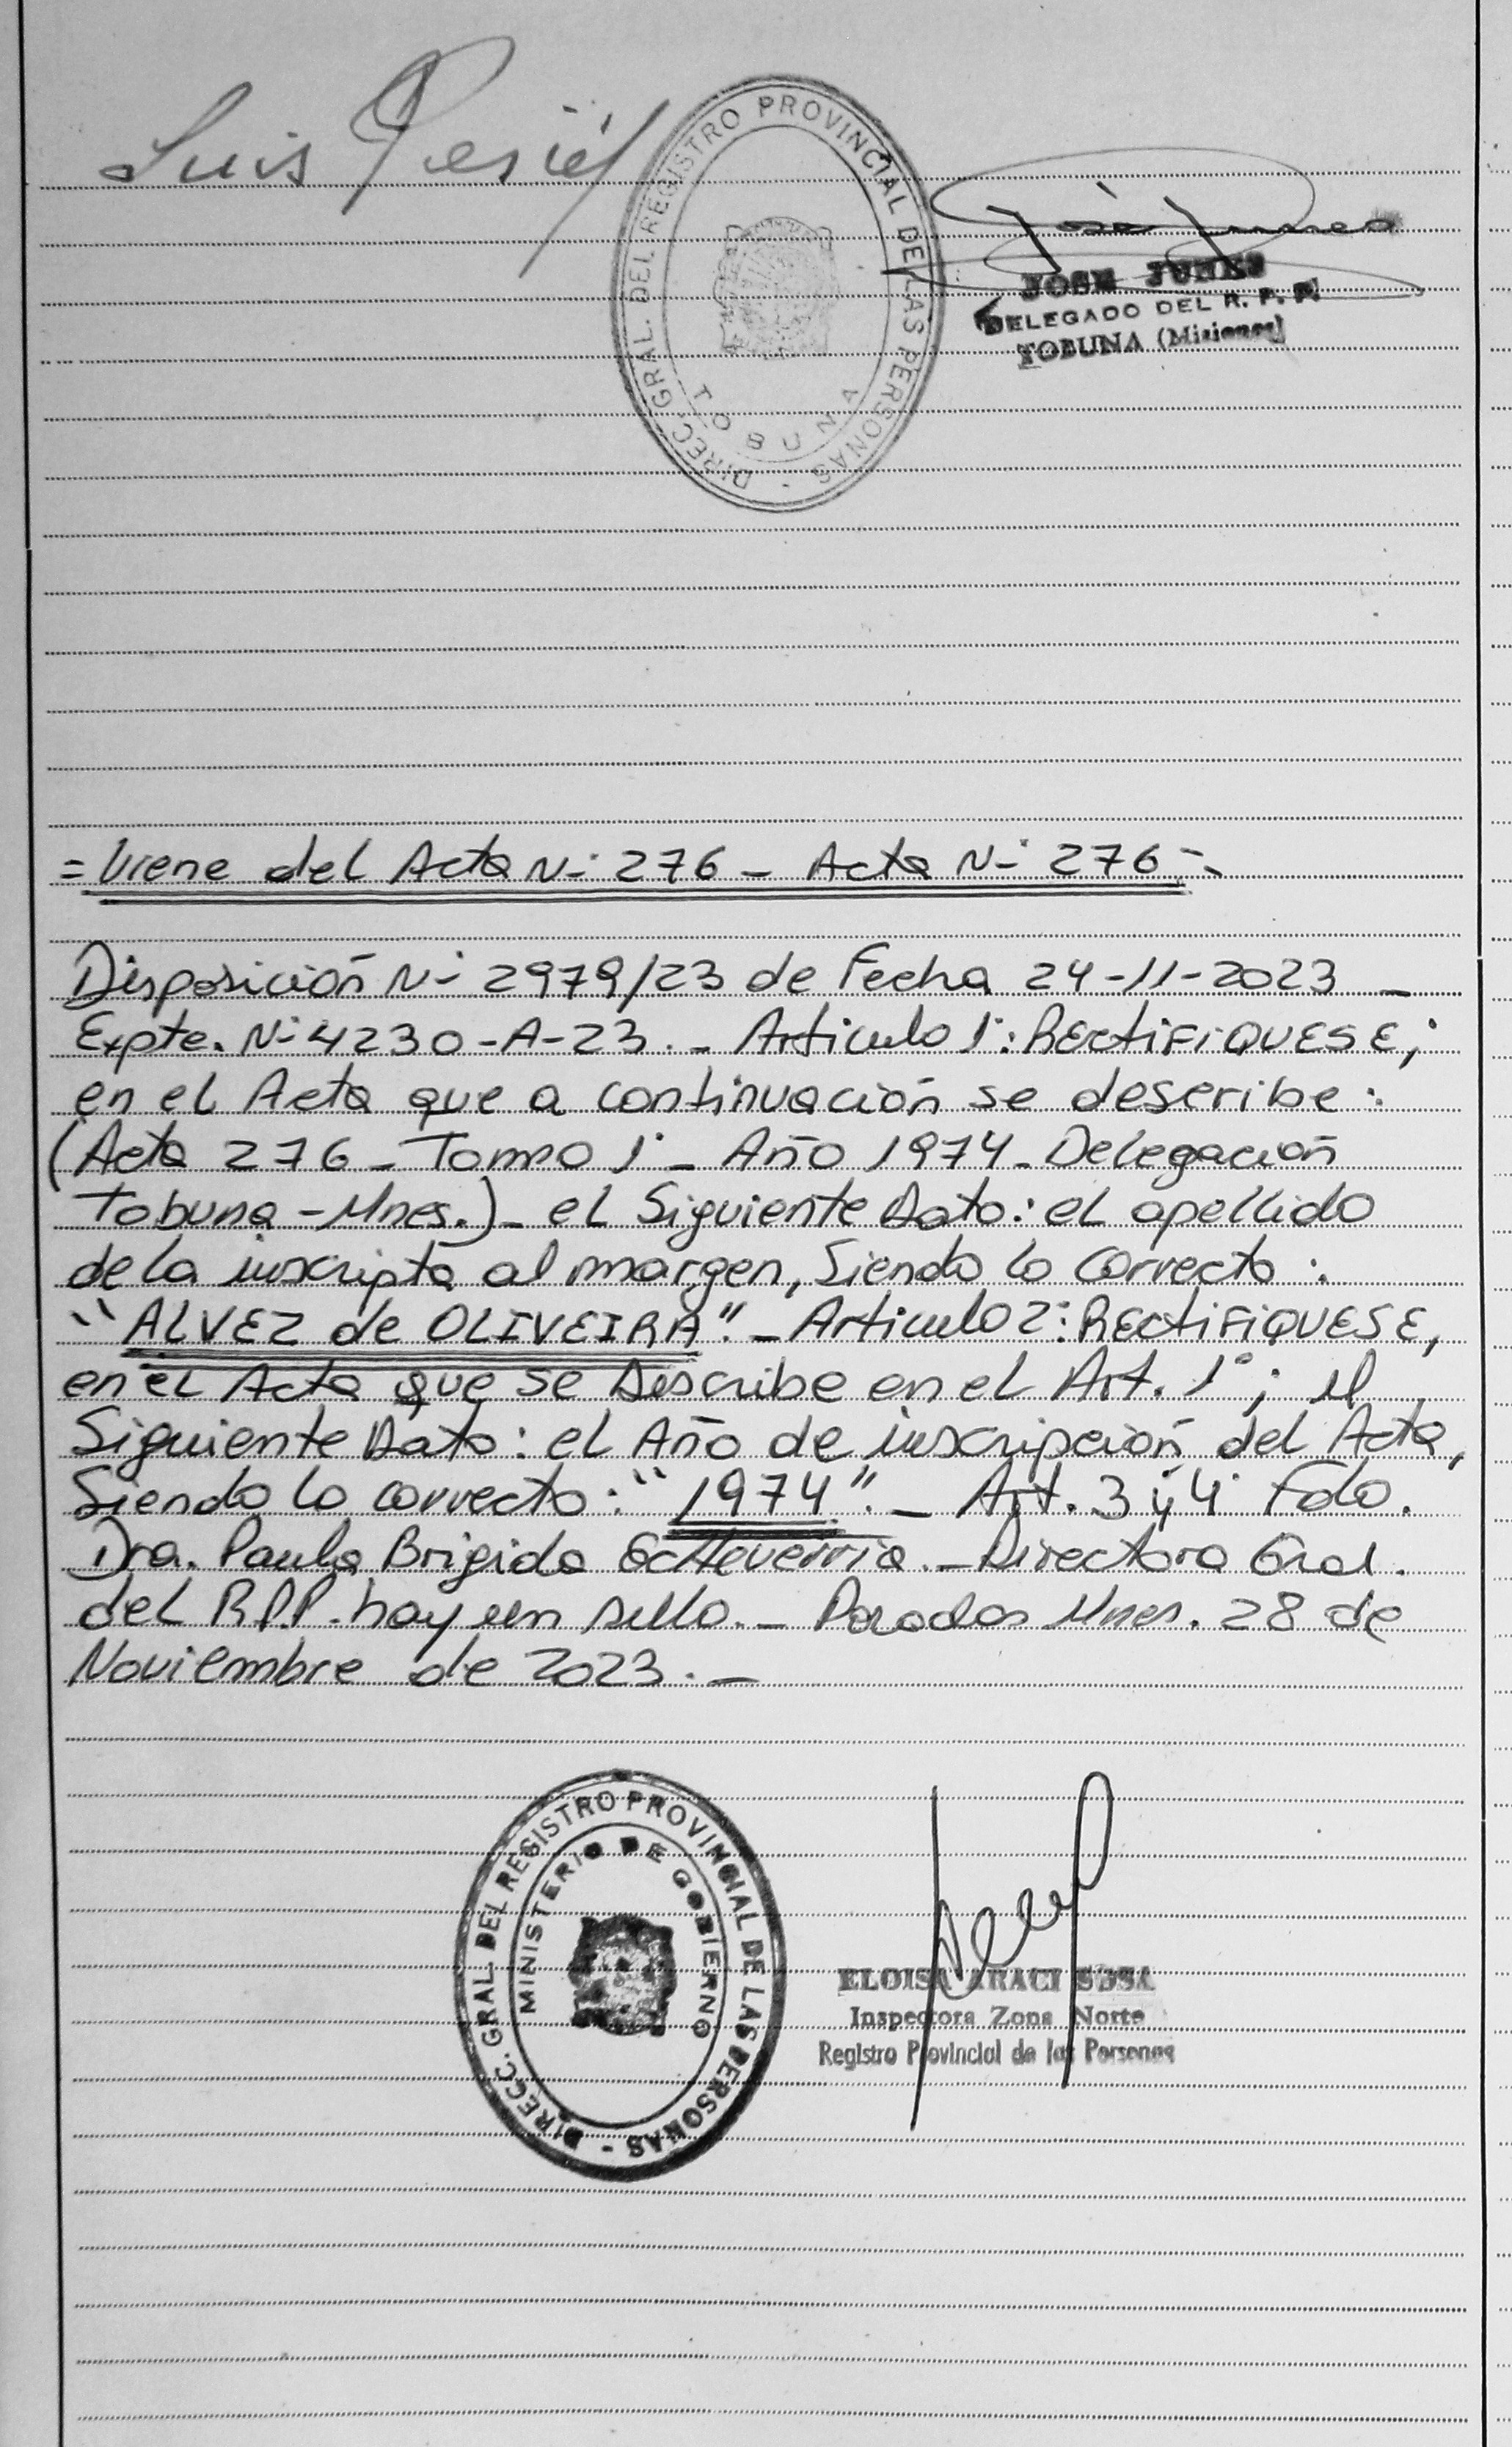 Luis
DIREC. GRAL. DEL REGISTRO PROVINCIAL DE LAS PERSONAS -
TOBUNA
JOSE JUNES
DELEGADO DEL R. P. P.
TOBUNA (Misiones)
= Viene del Acta N° 276 - Acta N° 276 =
Disposición N° 2979/23 de Fecha 24-11-2023 -
Expte. N° 4230-A-23. - Articulo 1°: RECTIFIQUESE;
en el Acta que a continuación se describe:
(Acta 276 - Tomo 1° - Año 1974 - Delegación
Tobuna - Mnes.) - el Siguiente Dato: el apellido
de la inscripta al margen, Siendo lo Correcto:
"ALVEZ de OLIVEIRA". - Articulo 2: RECTIFIQUESE,
en el Acta que se Describe en el Art. 1°; el
Siguiente Dato: el Año de inscripción del Acta,
Siendo lo correcto: "1974". - Art. 3 y 4° Fdo.
Dra. Paula Brigida Echeverria. - Directora Gral.
del R.P.P. hay un sello. - Posadas Mnes. 28 de
Noviembre de 2023. -
DIRECC. GRAL. DEL REGISTRO PROVINCIAL DE LAS PERSONAS -
MINISTERIO DE GOBIERNO
ELOISA ARACI SOSA
Inspectora Zona Norte
Registro Provincial de las Personas